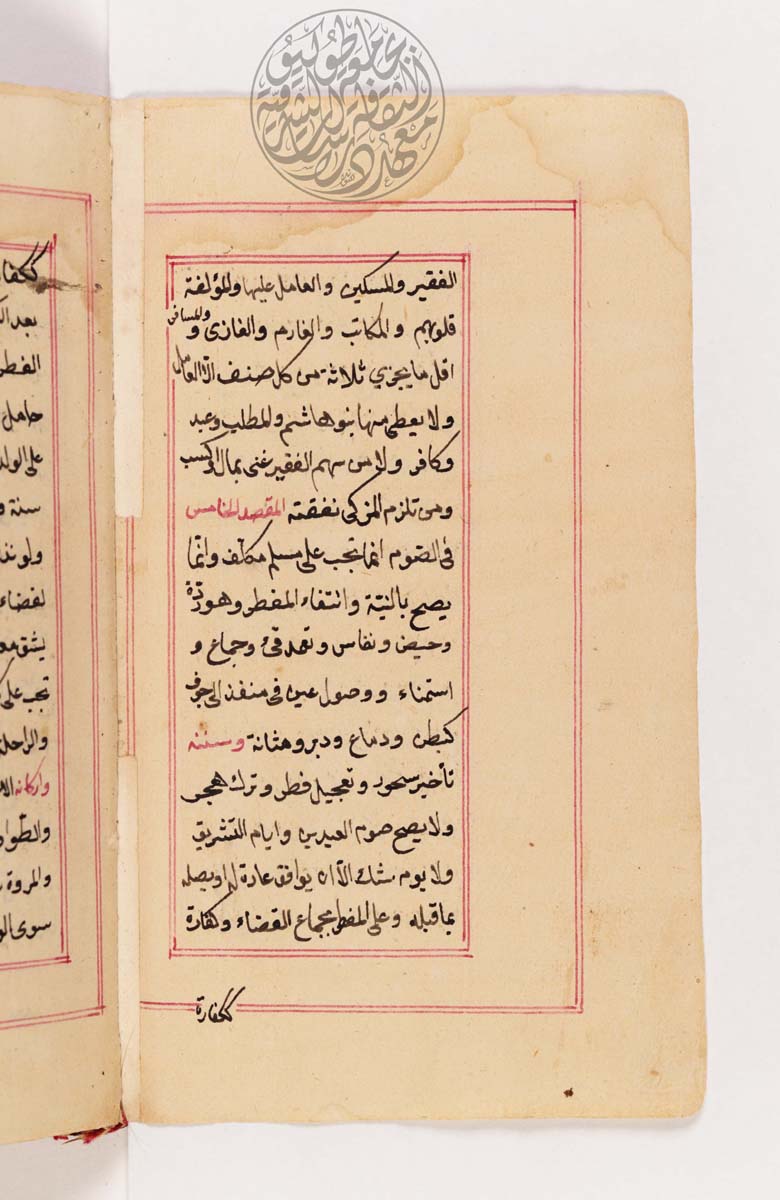 الفقير والمسكين والعامل عليها والمؤلفة
قلوبهم والمكاتب والغارم والغازى والمسافر و
اقل ما يجزي ثلاثة من كل صنف الا العامل
ولا يعطى منها بنو هاشم والمطلب وعبد
وكافر ولا من سهم الفقير غنى بمال او كسب
ومن تلزم المزكى نفقته المقصد الخامس
فى الصوم انما تجب على مسلم مكلف وانما
يصح بالنية وانتفاء المفطر وهو ردة
وحيض ونفاس وتعمد قئ وجماع و
استمناء ووصول عين فى منفذ الى جوف
كبطن ودماع ودبر ومثانة وسننه
تأخير سحور وتعجيل فطر وترك هجر
ولا يصح صوم العيدين وايام التشريق
ولا يوم شك الا ان يوافق عادة له او يصله
بما قبله وعلى المفطر بجماع القضاء وكفارة
ككفارة
ككفا
بعد
الفطر
حامل
على الولد
سنة و
ولو نذ
لقضاء
يشق
تجب على
والراحلة
واركانه الا
والطوا
والمروة
سوى الو